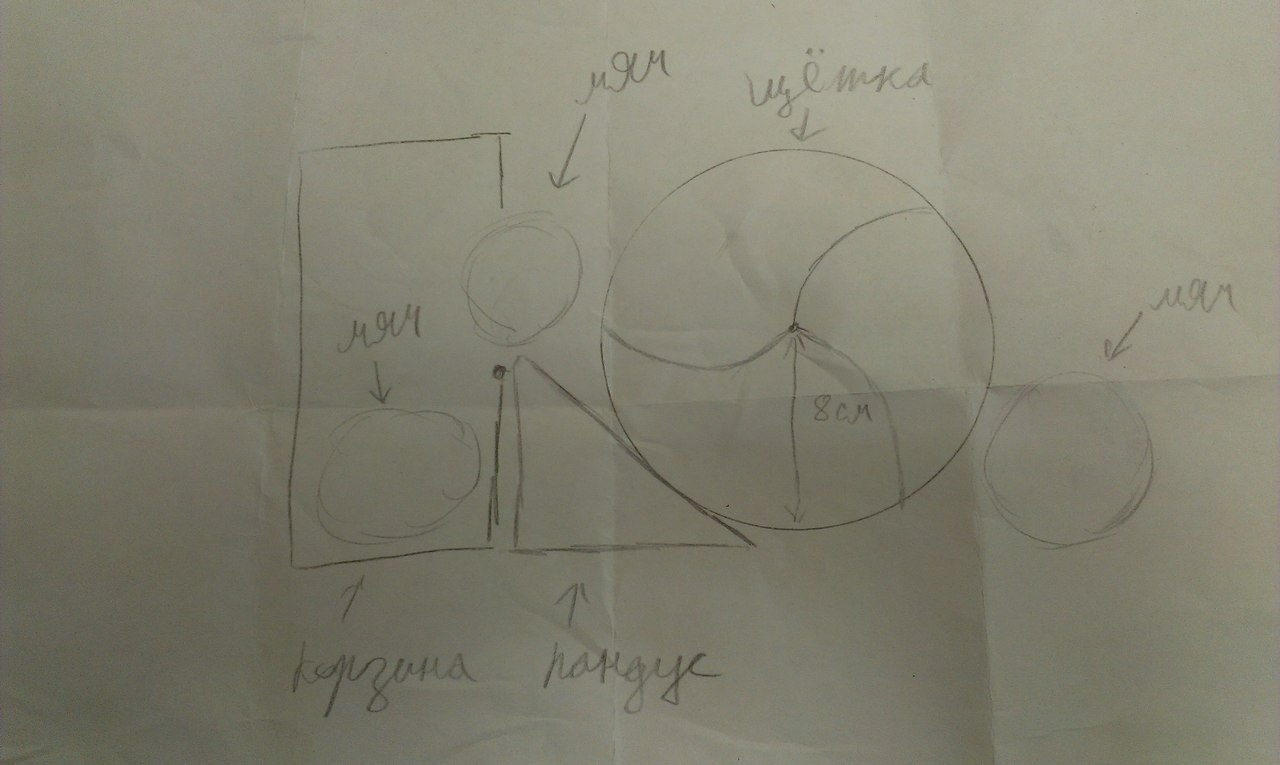 мяч
щётка
мяч
мяч
8см
корзина
пандус